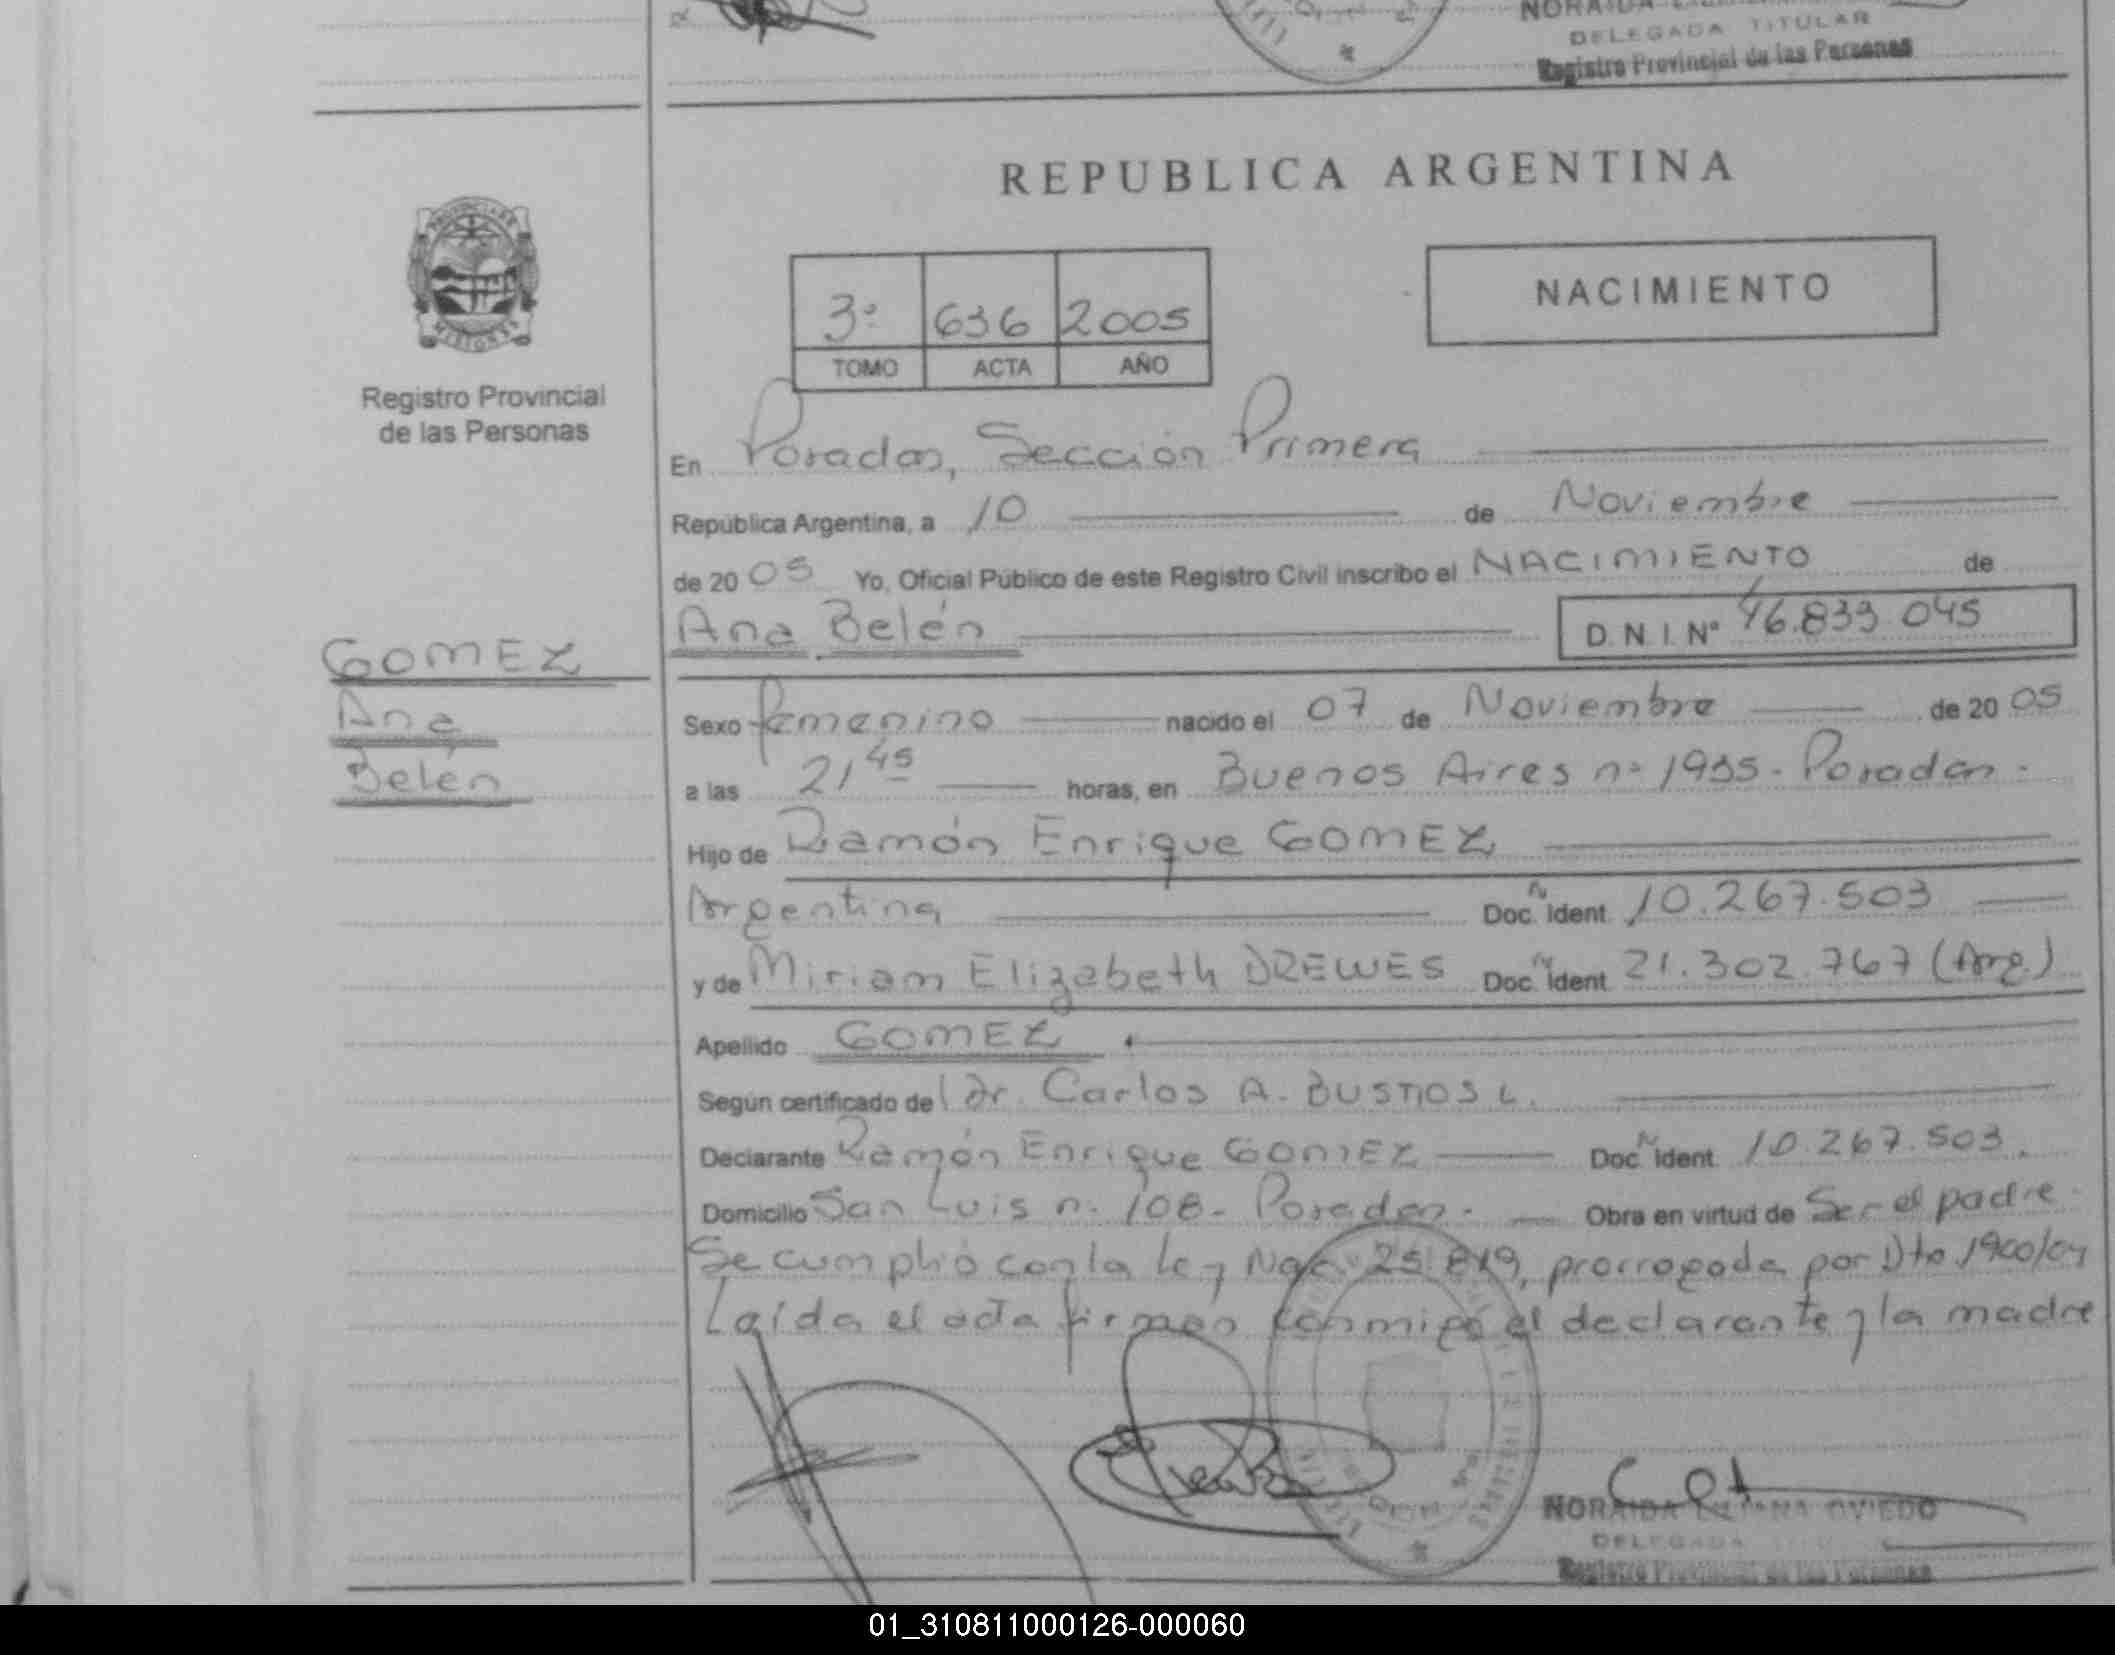 DELEGADA TITULAR
Registro Provincial de las Personas
REPUBLICA ARGENTINA
PROVINCIA DE
MISIONES
Registro Provincial
de las Personas
3º 636 2005
TOMO ACTA AÑO
NACIMIENTO
En Posadas, Sección Primera
República Argentina, a 10 de Noviembre
de 2005 Yo, Oficial Público de este Registro Civil inscribo el NACIMIENTO de
Ana Belén D.N.I. Nº 46.833.045
GOMEZ
Ana
Belén
Sexo femenino nacido el 07 de Noviembre de 2005
a las 21 45 horas, en Buenos Aires nº 1935 - Posadas.
Hijo de Ramón Enrique GOMEZ
Argentina Doc. Ident. 10.267.503
y de Miriam Elizabeth DREWES Doc. Ident. 21.302.767 (Arg.)
Apellido GOMEZ
Según certificado del Dr. Carlos A. BUSTOS L.
Declarante Ramón Enrique GOMEZ Doc. Ident. 10.267.503.
Domicilio San Luis nº 108 - Posadas. Obra en virtud de Ser el padre.
Se cumplió con la ley Nac. 25.819, prorrogada por Dto. 1900/04
Leída el acta firman conmigo el declarante y la madre
NORAIDA LILIANA OVIEDO
DELEGADA
Registro Provincial de las Personas
01_310811000126-000060